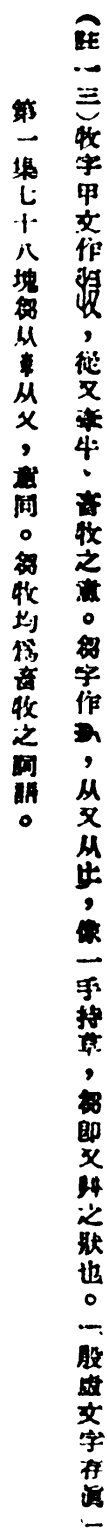 （註一三）牧字甲文作，從又牽牛、畜牧之意。芻字作，从又从屮，像一手持草，芻即又艸之狀也。「殷虛文字存眞」
第一集七十八塊芻从㞢从又，意同。芻牧均爲畜牧之詞謂。